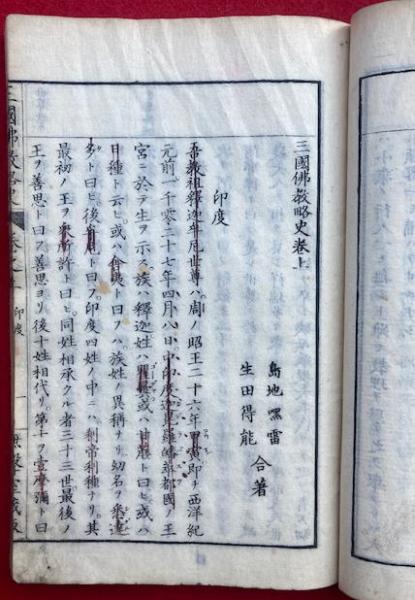 三國佛教略史卷上
島地黙雷
生田得能
合著
印度
吾教祖釋迦牟尼世尊ハ周ノ昭王二十六年甲寅即チ西洋紀
元前一千零二十七年四月八日中印度迦毘羅皤窣都國ノ王
宮ニ於テ生ヲ示ス族ハ釋迦姓ハ瞿曇或ハ甘蔗ト曰ヒ或ハ
日種ト云ヒ或ハ舍夷ト曰フハ族姓ノ異稱ナリ幼名ヲ悉達
多ト曰ヒ後ト曰フ印度四姓ノ中ニハ刹帝利種ナリ其
最初ノ王ヲ衆所許ト曰ヒ同姓相承クル者三十三世最後ノ
王ヲ善思ト曰フ善思ヨリ後十姓相代リ第十ヲ摩彌ト曰
三國佛教略史
卷之上
印度
一